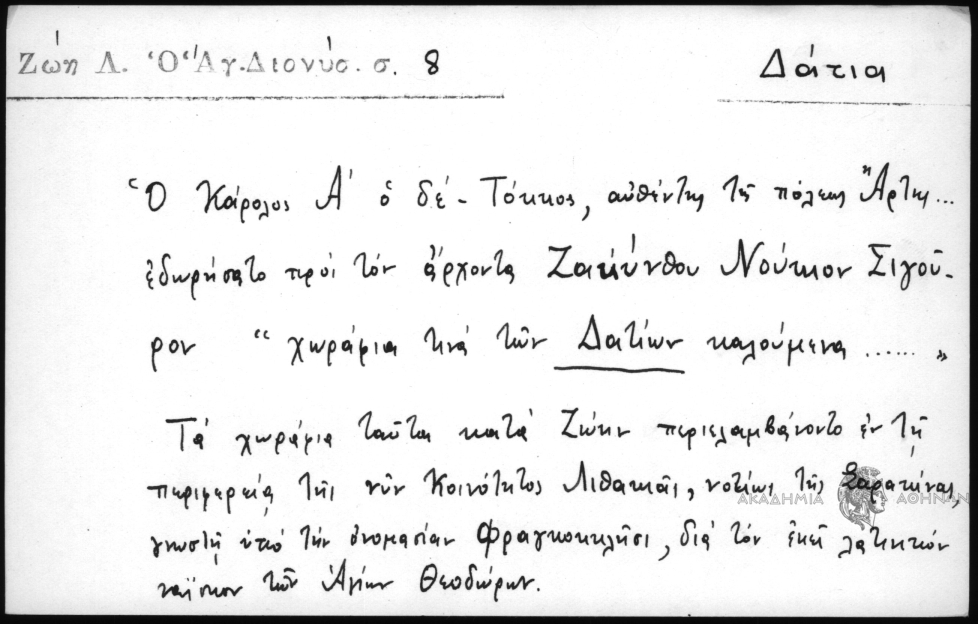 Ζώη Λ. Ὁ Ἅγ. Διονύσ. σ. 8
Δάτια
Ὁ Κάρολος Α' ὁ δέ - Τόκκος, αὐθέντης τῆς πόλεως Ἄρτης...
ἐδωρήσατο πρός τόν ἄρχοντα Ζακύνθου Νούκιον Σιγοῦ-
ρον " χωράφια τινά τῶν Δατίων καλούμενα ...... "
Τά χωράφια ταῦτα κατά Ζώην περιελαμβάνοντο ἐν τῇ
περιφερείᾳ τῆς νῦν Κοινότητος Λιθακιᾶς, νοτίως τῆς Σαρακίνας,
γνωστή ὑπό τήν ὀνομασίαν Φραγκοκκλῆσι, διά τόν ἐκεῖ λατινικόν
ναΐσκον τῶν Ἁγίων Θεοδώρων.
ΑΚΑΔΗΜΙΑ ΑΘΗΝΩΝ